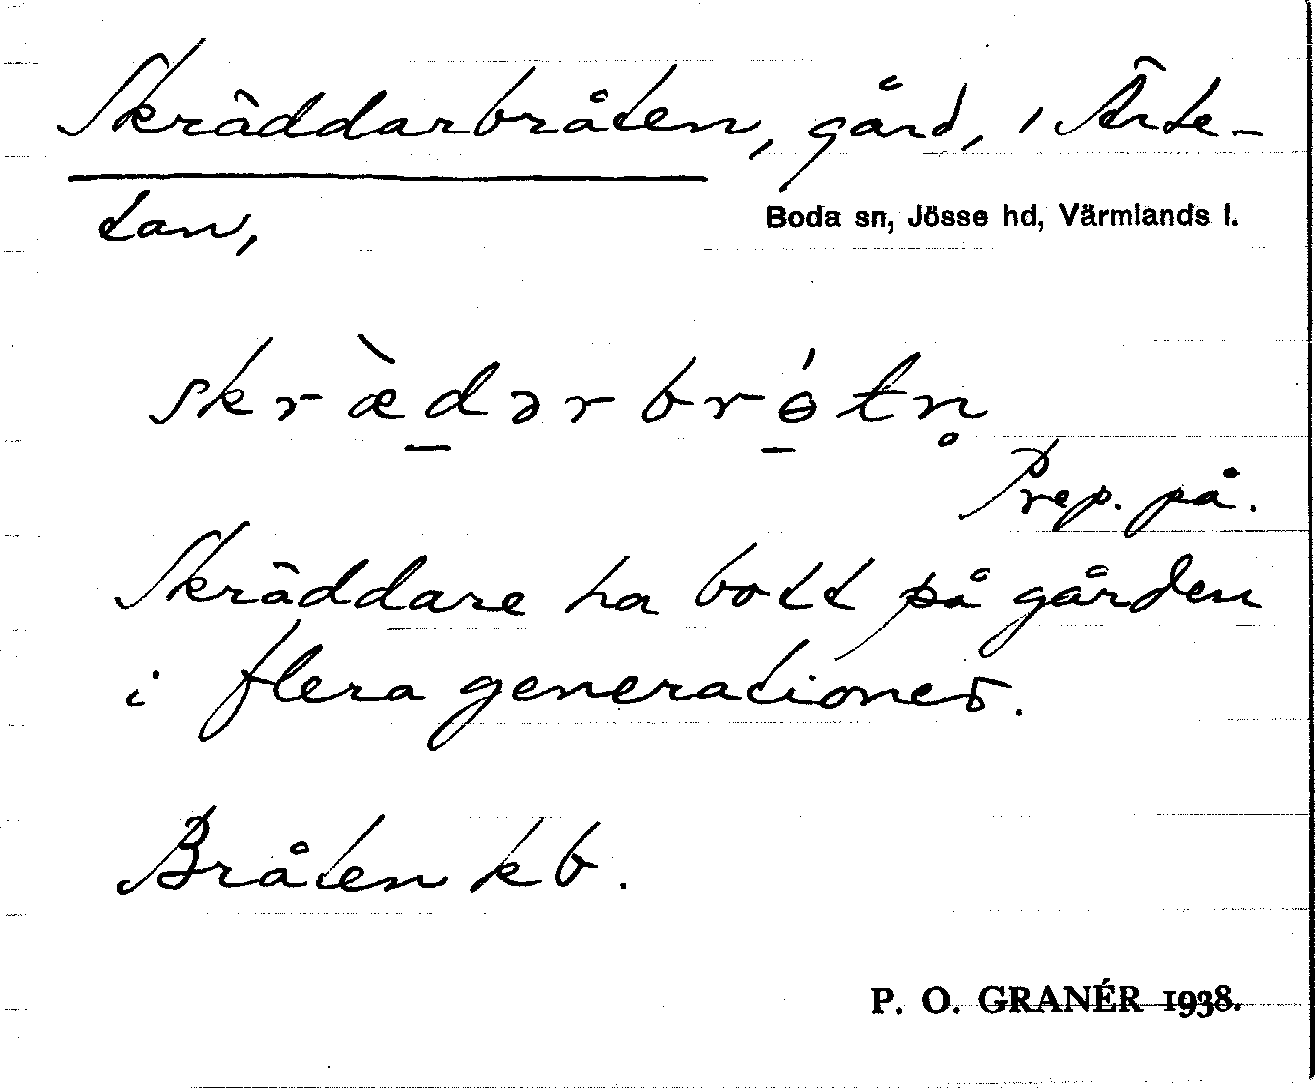 Skräddarbråten, gård, i Ärte-
tan,
Boda sn, Jösse hd, Värmlands l.
skræ̀dərbrɵ́tn̥
Prep. på.
Skräddare ha bott på gården
i flera generationer.
Bråten kb.
P. O. GRANÉR 1938.